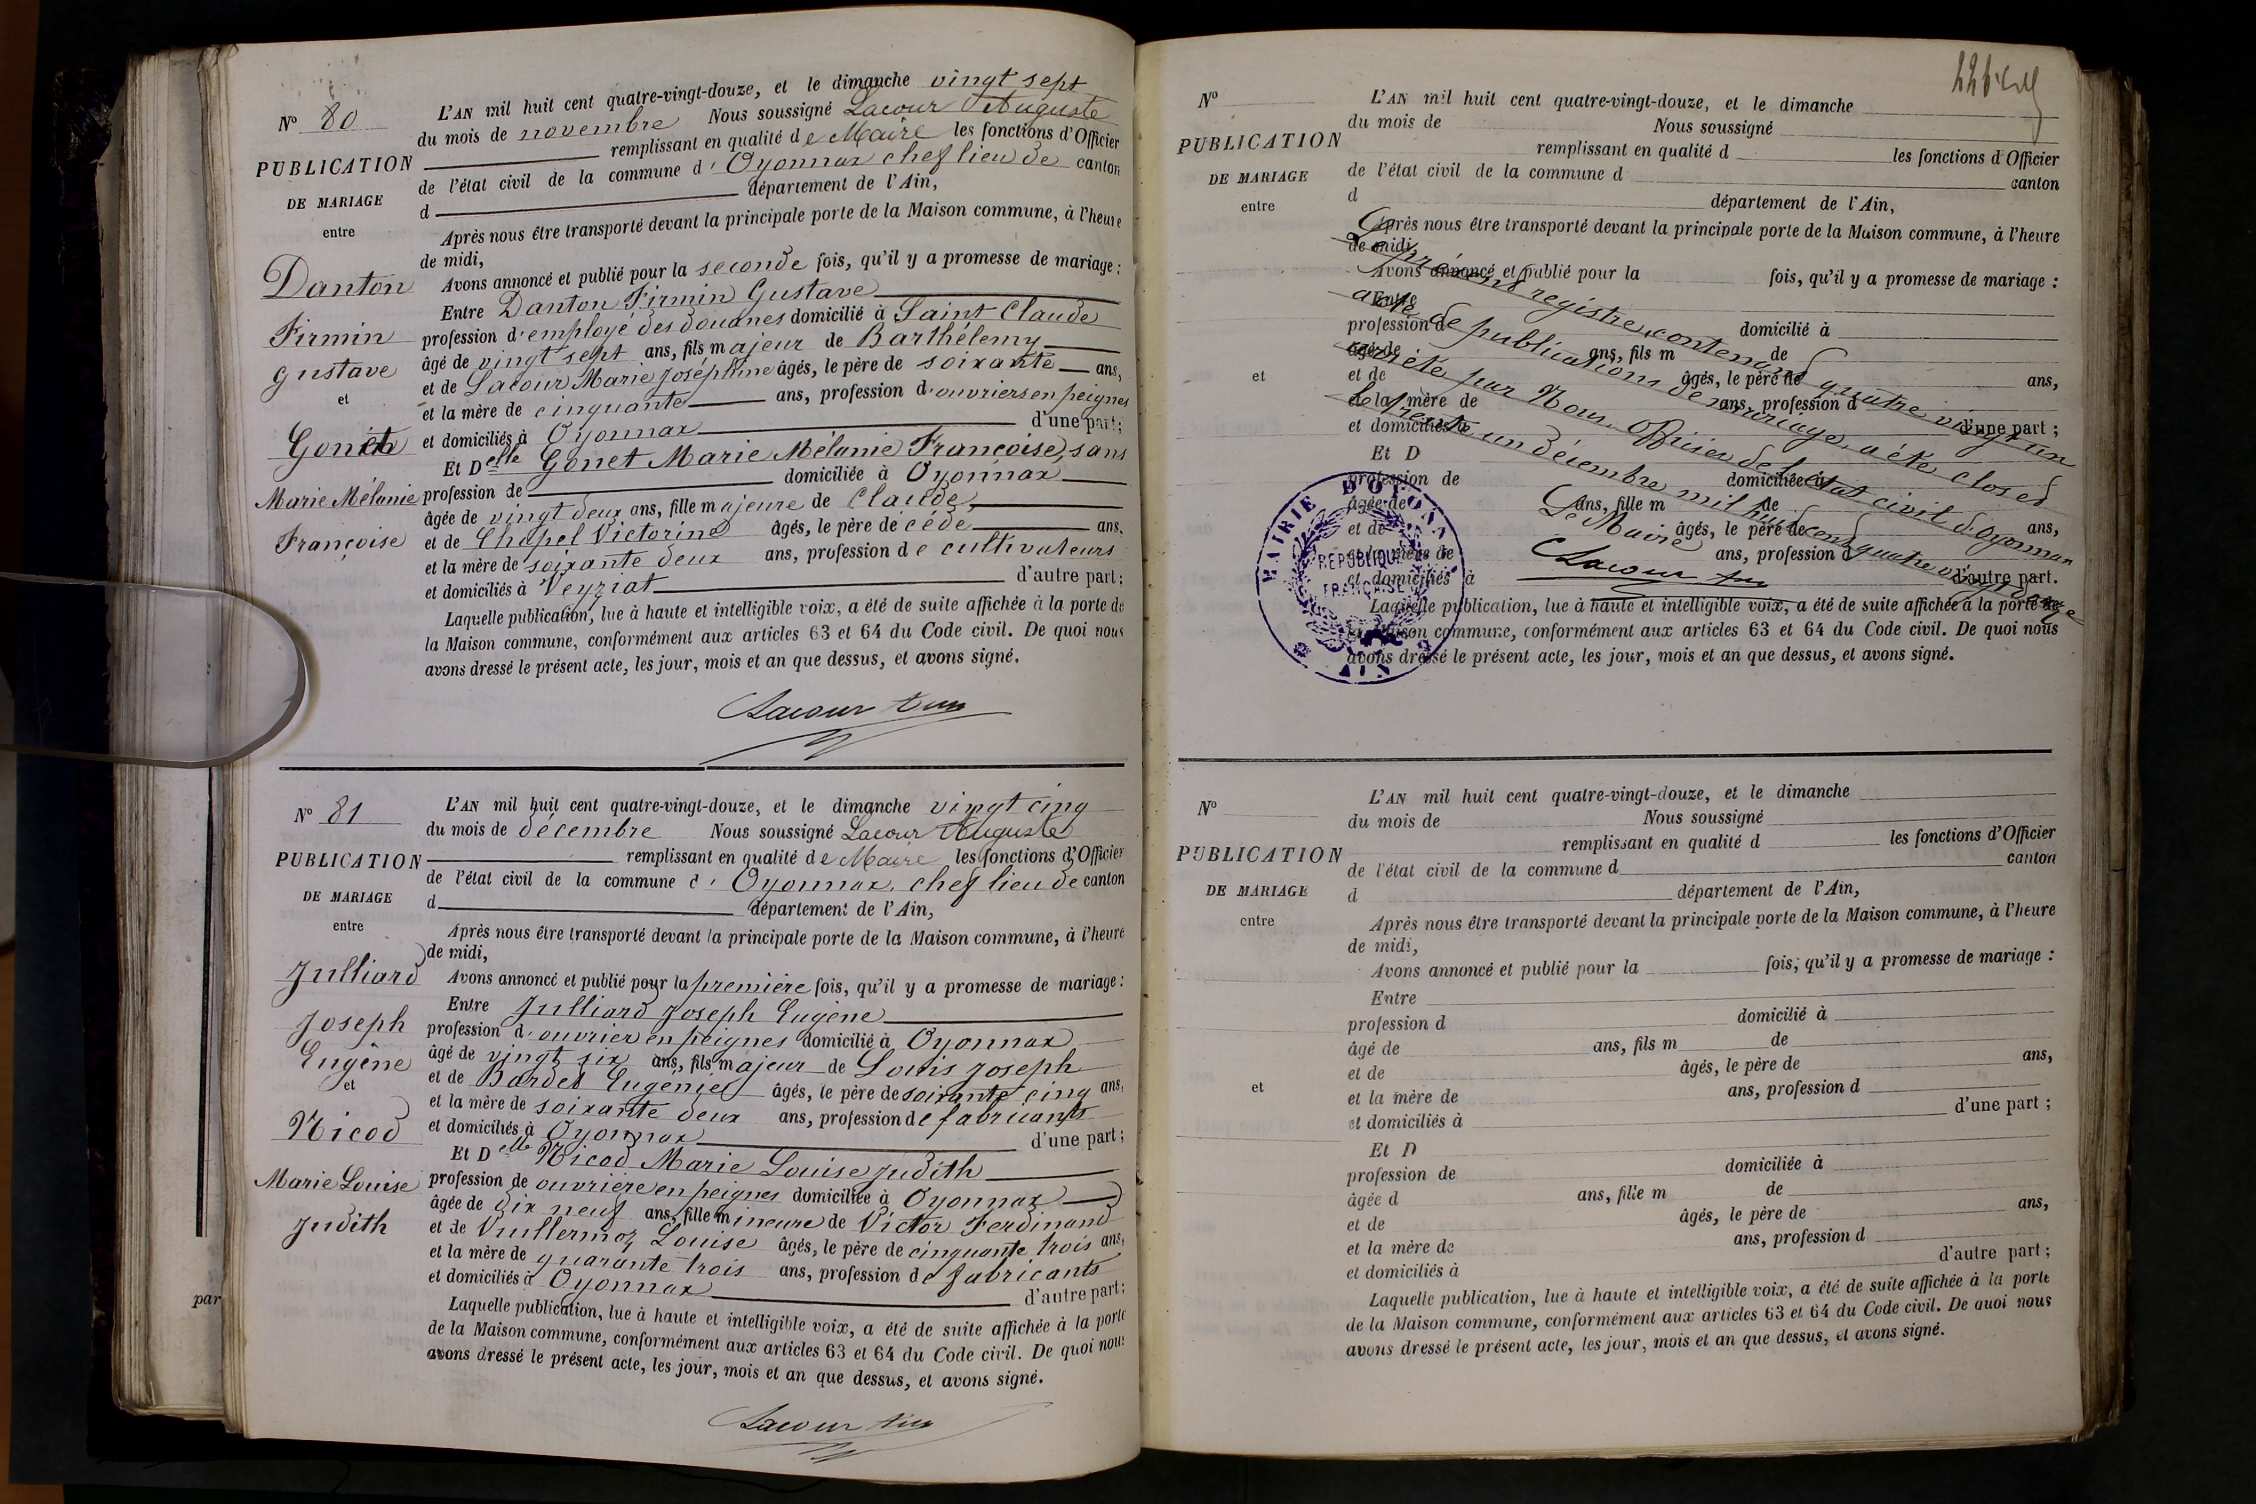 N° 80
PUBLICATION
DE MARIAGE
entre
Danton
Firmin
Gustave
et
Gonet
Marie Mélanie
Françoise
L'AN mil huit cent quatre-vingt-douze, et le dimanche vingt sept
du mois de novembre Nous soussigné Lacour Auguste
remplissant en qualité de Maire les fonctions d'Officier
de l'état civil de la commune d'Oyonnax chef lieu de canton
d département de l'Ain,
Après nous être transporté devant la principale porte de la Maison commune, à l'heure
de midi,
Avons annoncé et publié pour la seconde fois, qu'il y a promesse de mariage :
Entre Danton Firmin Gustave
profession d'employé des douanes domicilié à Saint Claude
âgé de vingt sept ans, fils majeur de Barthélemy
et de Lacour Marie Joséphine âgés, le père de soixante ans,
et la mère de cinquante ans, profession d'ouvriers en peignes
et domiciliés à Oyonnax d'une part;
Et Delle Gonet Marie Mélanie Françoise, sans
profession de domiciliée à Oyonnax
âgée de vingt deux ans, fille majeure de Claude
et de Chapel Victorine âgés, le père décédé ans.
et la mère de soixante deux ans, profession de cultivateurs
et domiciliés à Veyziat d'autre part;
Laquelle publication, lue à haute et intelligible voix, a été de suite affichée à la porte de
la Maison commune, conformément aux articles 63 et 64 du Code civil. De quoi nous
avons dressé le présent acte, les jour, mois et an que dessus, et avons signé.
Lacour
N° 81
PUBLICATION
DE MARIAGE
entre
Julliard
Joseph
Eugène
et
Nicod
Marie Louise
Judith
L'AN mil huit cent quatre-vingt-douze, et le dimanche vingt cinq
du mois de décembre Nous soussigné Lacour Auguste
remplissant en qualité de Maire les fonctions d'Officier
de l'état civil de la commune d'Oyonnax, chef lieu de canton
d département de l'Ain,
Après nous être transporté devant la principale porte de la Maison commune, à l'heure
de midi,
Avons annoncé et publié pour la première fois, qu'il y a promesse de mariage :
Entre Julliard Joseph Eugène
profession d'ouvrier en peignes domicilié à Oyonnax
âgé de vingt six ans, fils majeur de Louis Joseph
et de Bardet Eugénie âgés, le père de soixante cinq ans,
et la mère de soixante deux ans, profession de fabricants
et domiciliés à Oyonnax d'une part;
Et Delle Nicod Marie Louise Judith
profession de ouvrière en peignes domiciliée à Oyonnax
âgée de dix neuf ans, fille mineure de Victor Ferdinand
et de Vuillermoz Louise âgés, le père de cinquante trois ans,
et la mère de quarante trois ans, profession de fabricants
et domiciliés à Oyonnax d'autre part;
Laquelle publication, lue à haute et intelligible voix, a été de suite affichée à la porte
de la Maison commune, conformément aux articles 63 et 64 du Code civil. De quoi nous
avons dressé le présent acte, les jour, mois et an que dessus, et avons signé.
Lacour
par
N°
PUBLICATION
DE MARIAGE
entre
et
L'AN mil huit cent quatre-vingt-douze, et le dimanche
du mois de Nous soussigné
remplissant en qualité d les fonctions d'Officier
de l'état civil de la commune d canton
d département de l'Ain,
Après nous être transporté devant la principale porte de la Maison commune, à l'heure
de midi,
Avons annoncé et publié pour la fois, qu'il y a promesse de mariage :
Entre
profession d domicilié à
âgé de ans, fils m de
et de âgés, le père de ans,
et la mère de ans, profession d
et domiciliés à d'une part ;
Et D
profession de domiciliée à
âgée de ans, fille m de
et de âgés, le père de ans,
et la mère de ans, profession d
et domiciliés à d'autre part.
Laquelle publication, lue à haute et intelligible voix, a été de suite affichée à la porte de
la Maison commune, conformément aux articles 63 et 64 du Code civil. De quoi nous
avons dressé le présent acte, les jour, mois et an que dessus, et avons signé.
présent registre, contenant quatre vingt un
acte de publications de mariage, a été closed
arrêté par Nous, Officier de l'état civil d'Oyonnax
le trente un décembre mil huit cent quatre vingt douze
Le Maire
Lacour
MAIRIE D'OYONNAX
REPUBLIQUE
FRANÇAISE
N°
PUBLICATION
DE MARIAGE
entre
et
L'AN mil huit cent quatre-vingt-douze, et le dimanche
du mois de Nous soussigné
remplissant en qualité d les fonctions d'Officier
de l'état civil de la commune d canton
d département de l'Ain,
Après nous être transporté devant la principale porte de la Maison commune, à l'heure
de midi,
Avons annoncé et publié pour la fois, qu'il y a promesse de mariage :
Entre
profession d domicilié à
âgé de ans, fils m de
et de âgés, le père de ans,
et la mère de ans, profession d
et domiciliés à d'une part ;
Et D
profession de domiciliée à
âgée d ans, fille m de
et de âgés, le père de ans,
et la mère de ans, profession d
et domiciliés à d'autre part ;
Laquelle publication, lue à haute et intelligible voix, a été de suite affichée à la porte
de la Maison commune, conformément aux articles 63 et 64 du Code civil. De quoi nous
avons dressé le présent acte, les jour, mois et an que dessus, et avons signé.